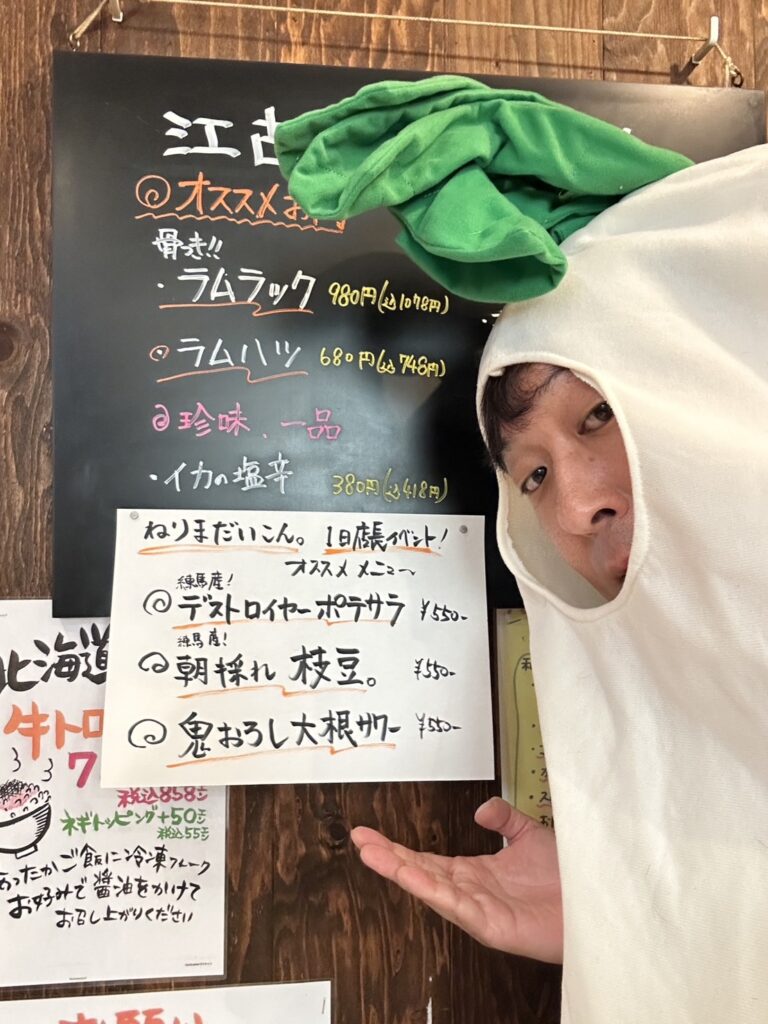 江古
オススメお肉
骨つき!!
・ラムラック 980円(込1078円)
ラムハツ 680円(込748円)
珍味、一品
・イカの塩辛 380円(込418円)
ねりまだいこん。 1日店長イベント!
オススメ メニュ〜
練馬産!
デストロイヤーポテサラ ¥550-
練馬産!
朝採れ 枝豆。 ¥550-
鬼おろし大根サワー ¥550-
北海道
牛トロ
7
税込858円
ネギトッピング+50円
税込55円
あったかご飯に冷凍フレーク
お好みで醤油をかけて
お召し上がりください
お願い